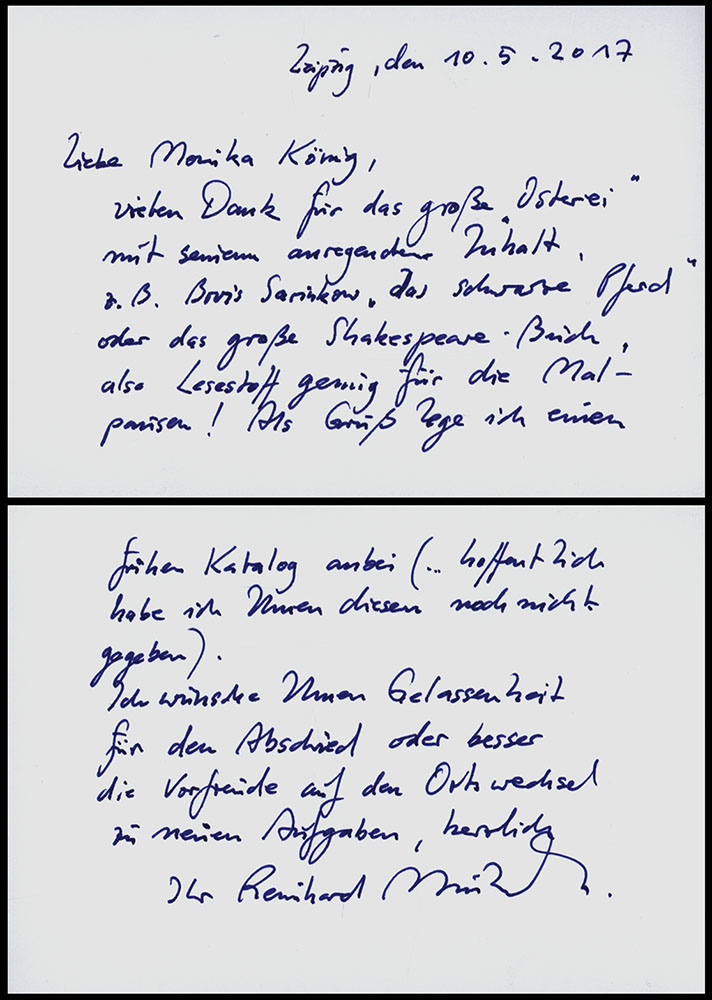 Leipzig, den 10.5.2017
Liebe Monika König,
vielen Dank für das große „Osterei“
mit seinem anregenden Inhalt,
z.B. Boris Sawinkow „das schwarze Pferd“
oder das große Shakespeare-Buch,
also Lesestoff genug für die Mal-
pausen! Als Gruß lege ich einen
frühen Katalog anbei (... hoffentlich
habe ich Ihnen diesen noch nicht
gegeben).
Ich wünsche Ihnen Gelassenheit
für den Abschied oder besser
die Vorfreude auf den Ortswechsel
zu neuen Aufgaben, herzlich
Ihr Reinhard